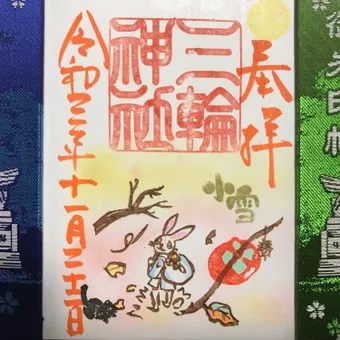 御朱印帳
奉拝
三輪
神社
小雪
令和三年十一月二十二日